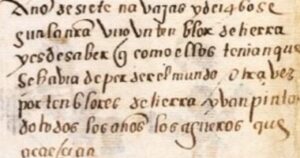 Año de siete navajas y de 1460 se
gun la nra vuo vn ten blor de tierra
y es de saber q como ellos tenian que
se havia de perder el mundo otra vez
por ten blores de tierra yvan pintan
do todos los años los agueros que
acaecian